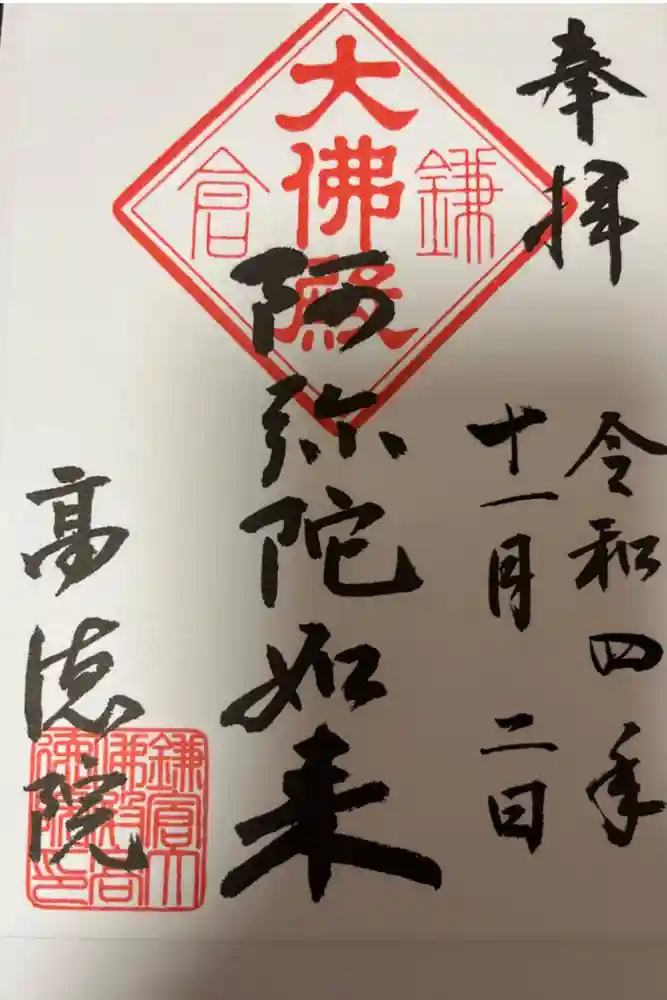 奉拝
令和四年
十一月二日
大佛殿
鎌倉
阿弥陀如来
高徳院
鎌倉大
佛殿高
徳院印